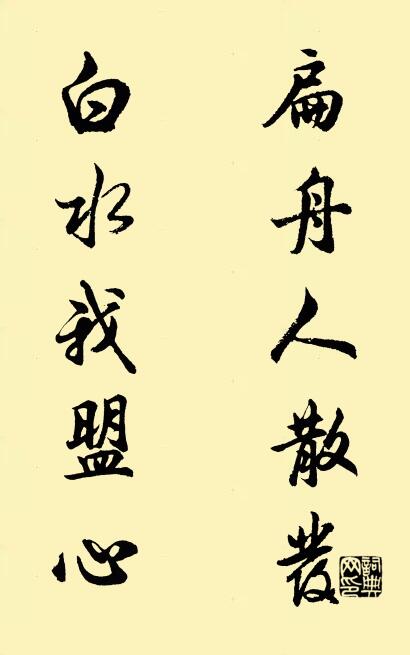 扁舟人散發
白水我盟心
詞典
网印